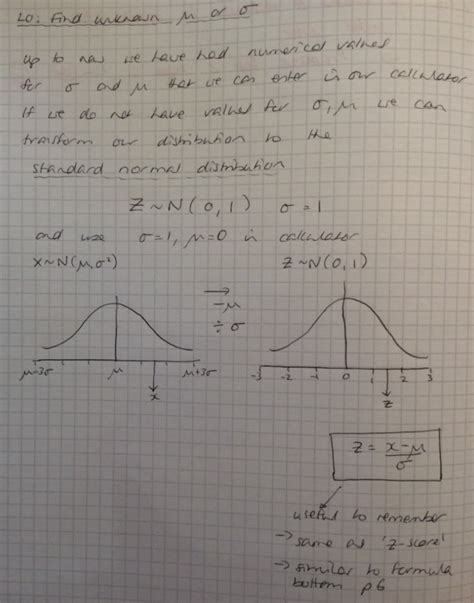 LO: Find unknown μ or σ
up to now we have had numerical values
for σ and μ that we can enter in our calculator
If we do not have values for σ, μ we can
transform our distribution to the
standard normal distribution
Z~N(0,1) σ=1
and use σ=1, μ=0 in calculator
x~N(μ,σ²) Z~N(0,1)
→
-μ
÷ σ
μ-3σ μ μ+3σ -3 -2 -1 0 1 2 3
x z
z = x-μ
σ
useful to remember
→ same as 'z-score'
→ similar to formula
bottom p6